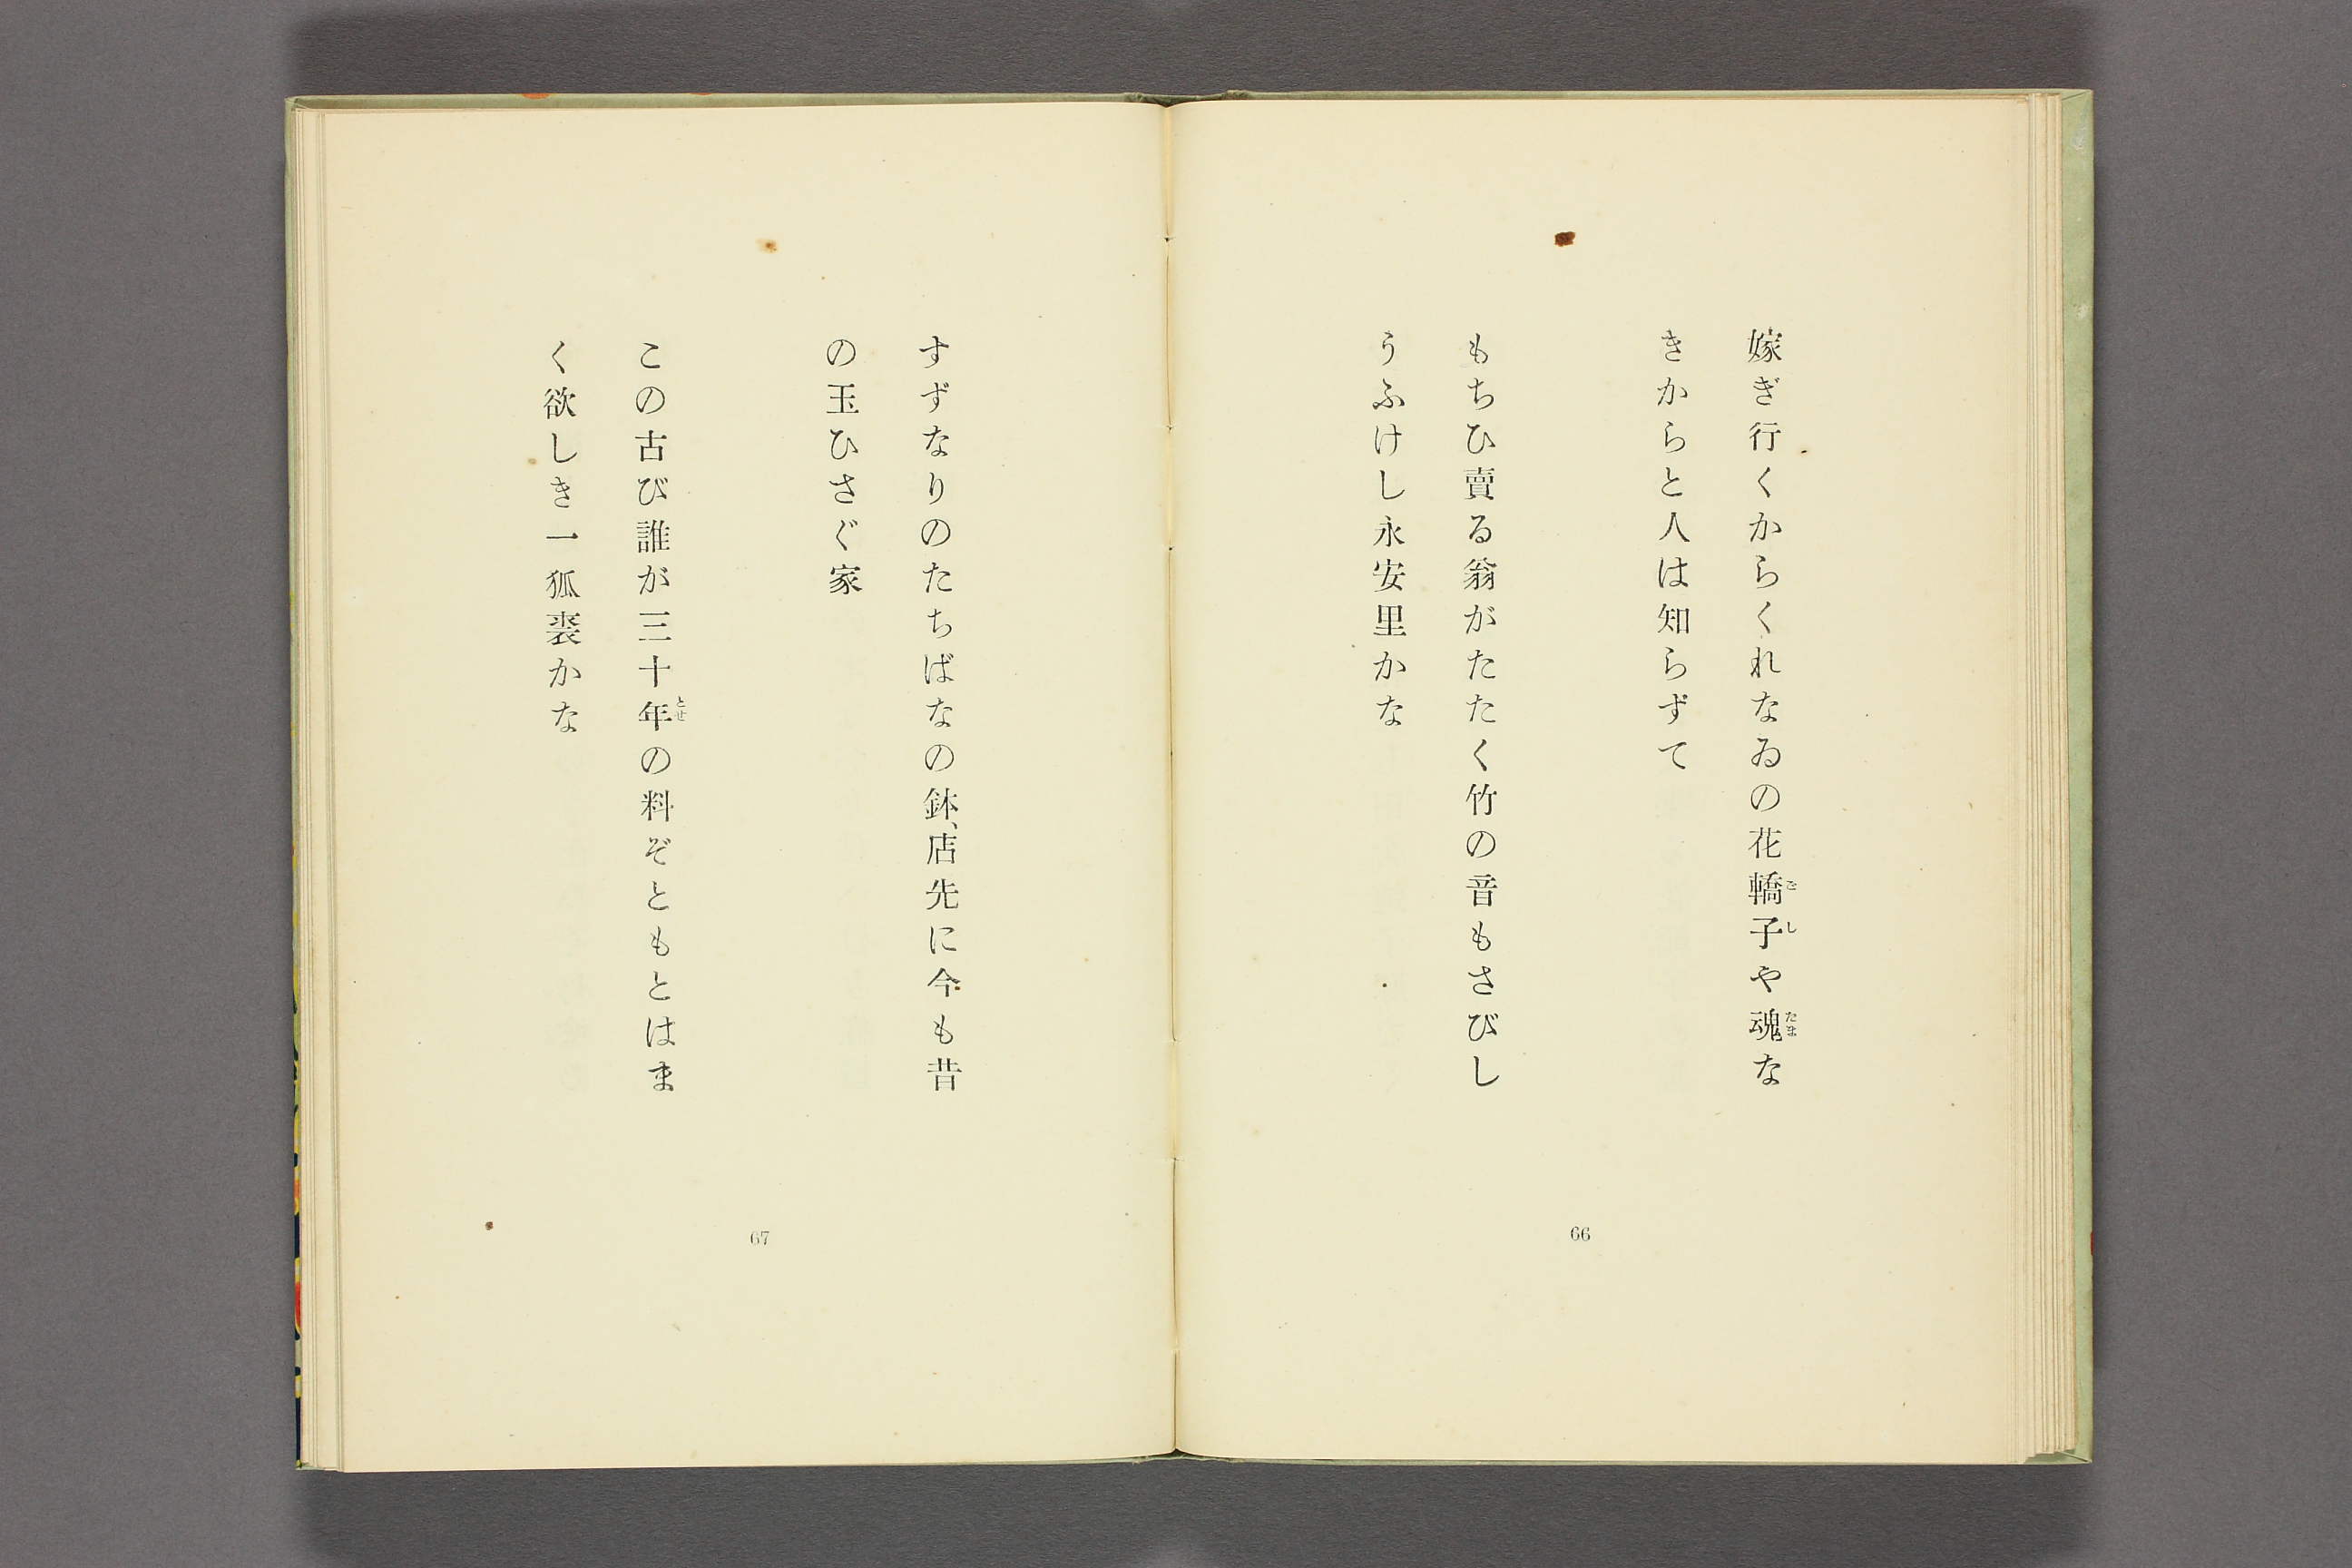 嫁ぎ行くからくれなゐの花轎子や魂な
きからと人は知らずて
もちひ賣る翁がたたく竹の音もさびし
うふけし永安里かな
66
すずなりのたちばなの鉢、店先に今も昔
の玉ひさぐ家
この古び誰が三十年の料ぞともとはま
く欲しき一狐裘かな
67